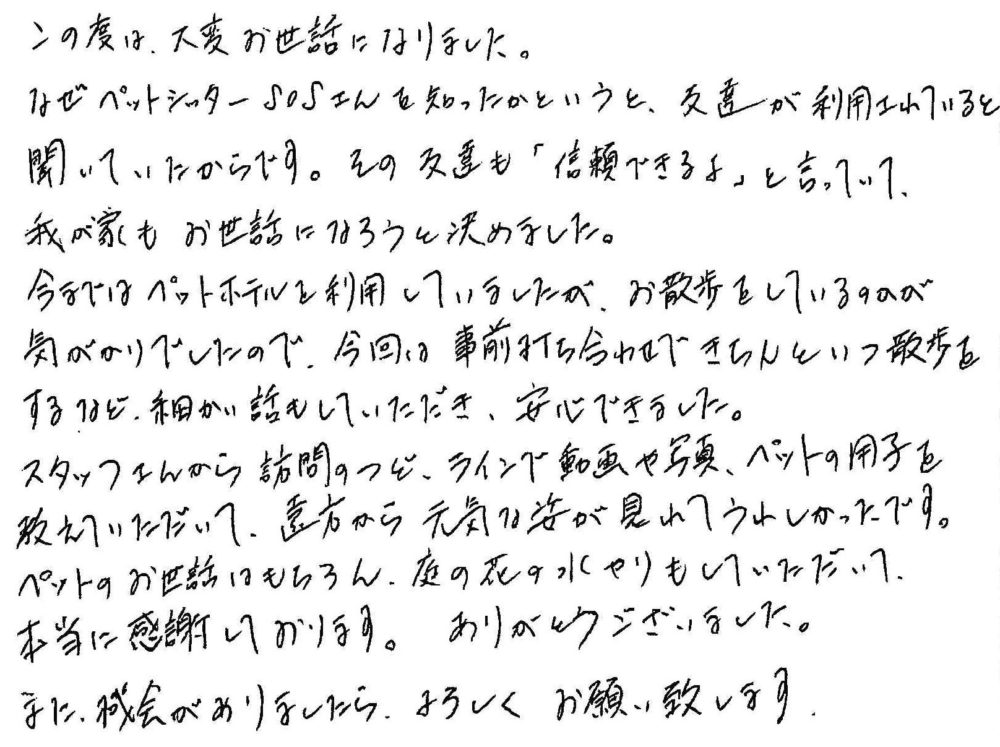 この度は、大変お世話になりました。
なぜペットシッターSOSさんを知ったかというと、友達が利用されていると
聞いていたからです。その友達も「信頼できるよ」と言っていて、
我が家もお世話になろうと決めました。
今まではペットホテルを利用していましたが、お散歩をしているのかが
気がかりでしたので、今回は事前打ち合わせできちんといつ散歩を
するなど、細かい話もしていただき、安心できました。
スタッフさんから訪問のつど、ラインで動画や写真、ペットの用子を
教えていただいて、遠方から元気な姿が見れてうれしかったです。
ペットのお世話はもちろん、庭の花の水やりもしていただいて、
本当に感謝しております。 ありがとうございました。
また、機会がありましたら、よろしくお願い致します.